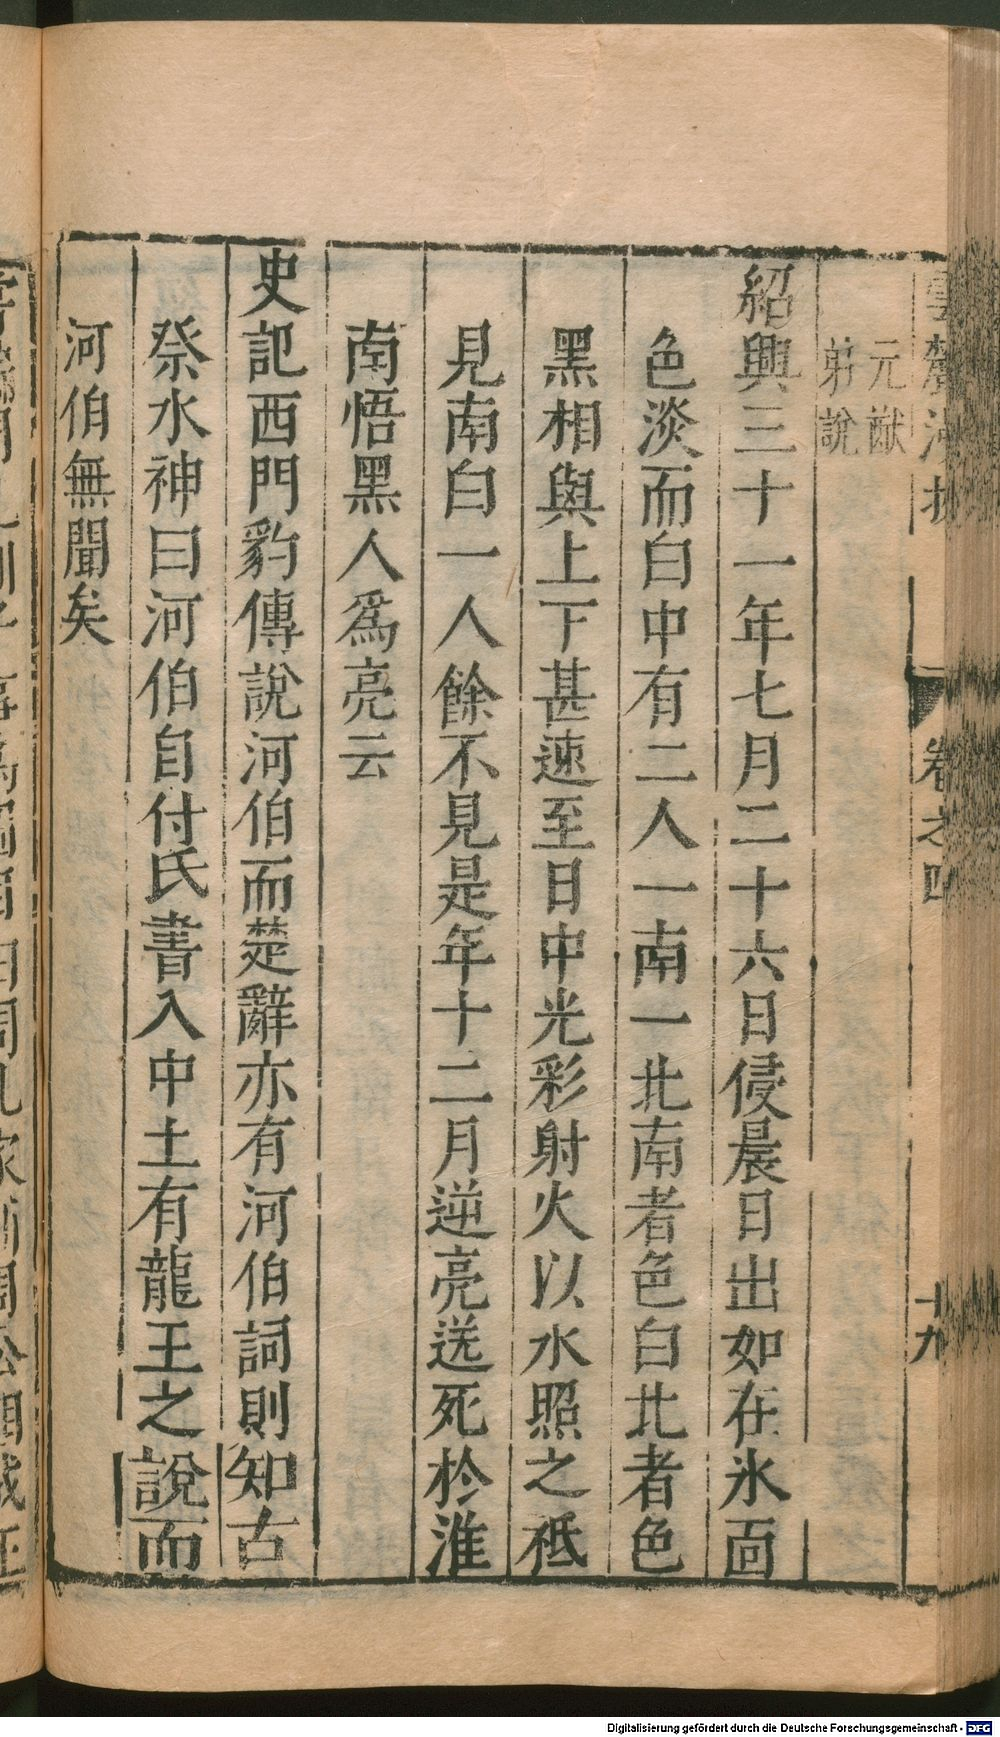 雲麓漫抄 卷之四 十九
元猷
弟說
紹興三十一年七月二十六日侵晨日出如在氷面
色淡而白中有二人一南一北南者色白北者色
黑相與上下甚速至日中光彩射火以水照之秪
見南白一人餘不見是年十二月逆亮送死於淮
南悟黑人爲亮云
史記西門豹傳說河伯而楚辭亦有河伯詞則知古
祭水神曰河伯自付氏書入中土有龍王之說而
河伯無聞矣
Digitalisierung gefördert durch die Deutsche Forschungsgemeinschaft - DFG